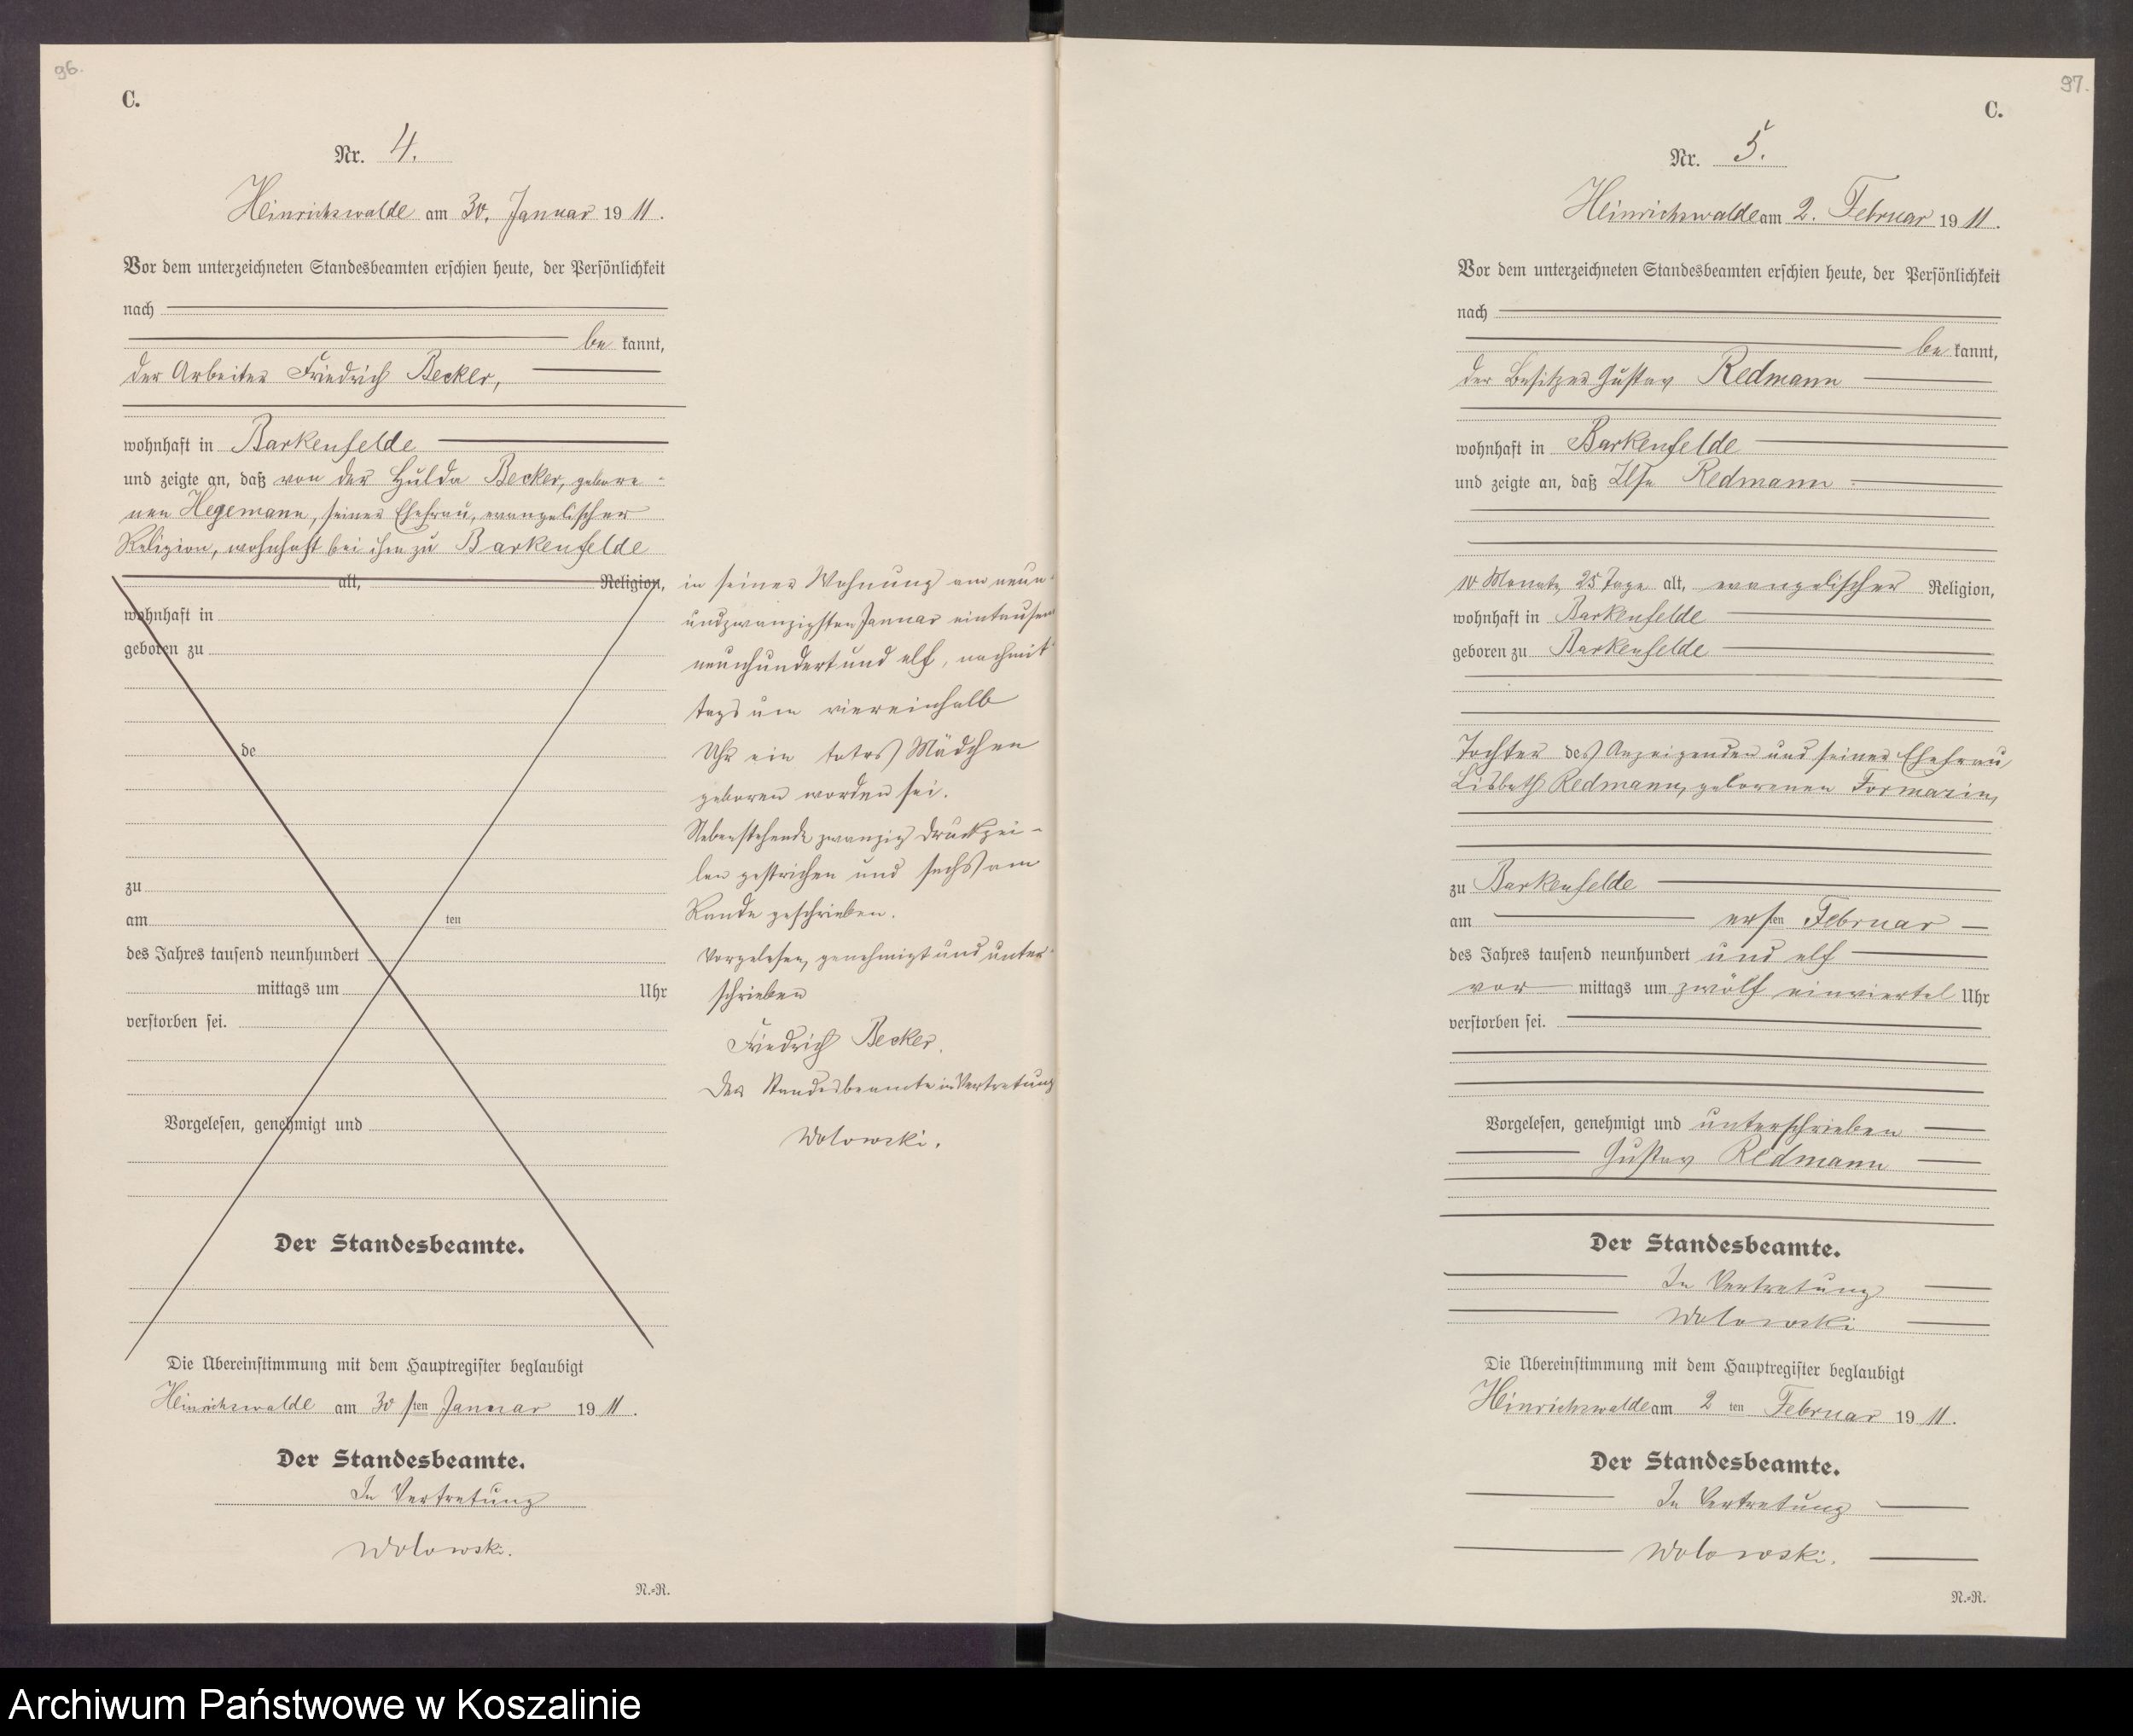 96.
C.
Nr. 4.
Heinrichswalde am 30. Januar 1911.
Vor dem unterzeichneten Standesbeamten erschien heute, der Persönlichkeit
nach
be kannt,
der Arbeiter Friedrich Becker,
wohnhaft in Barkenfelde
und zeigte an, daß von der Hulda Becker, gebore-
nen Hegemann, seiner Ehefrau, evangelischer
Religion, wohnhaft bei ihm zu Barkenfelde
alt, Religion,
wohnhaft in
geboren zu
de
zu
am ten
des Jahres tausend neunhundert
mittags um Uhr
verstorben sei.
Vorgelesen, genehmigt und
Der Standesbeamte.
in seiner Wohnung am neun-
undzwanzigsten Januar eintausend
neunhundert und elf, nachmit-
tags um viereinhalb
Uhr ein totes Mädchen
geboren worden sei.
Nebenstehende zwanzig Druckzei-
len gestrichen und sechs am
Rande geschrieben.
Vorgelesen, genehmigt und unter-
schrieben
Friedrich Becker.
Der Standesbeamte in Vertretung
Wolowski.
Die Übereinstimmung mit dem Hauptregister beglaubigt
Heinrichswalde am 30 sten Januar 1911.
Der Standesbeamte.
In Vertretung
Wolowski.
N.-R.
97.
C.
Nr. 5.
Heinrichswalde am 2. Februar 1911.
Vor dem unterzeichneten Standesbeamten erschien heute, der Persönlichkeit
nach
be kannt,
der Besitzer Gustav Redmann
wohnhaft in Barkenfelde
und zeigte an, daß Ilse Redmann
10 Monate 25 Tage alt, evangelischer Religion,
wohnhaft in Barkenfelde
geboren zu Barkenfelde
Tochter des Anzeigenden und seiner Ehefrau
Lisbeth Redmann, geborenen Formazin,
zu Barkenfelde
am ersten Februar
des Jahres tausend neunhundert und elf
vor mittags um zwölf einviertel Uhr
verstorben sei.
Vorgelesen, genehmigt und unterschrieben
Gustav Redmann
Der Standesbeamte.
In Vertretung
Wolowski
Die Übereinstimmung mit dem Hauptregister beglaubigt
Heinrichswalde am 2 ten Februar 1911.
Der Standesbeamte.
In Vertretung
Wolowski.
N.-R.
Archiwum Państwowe w Koszalinie